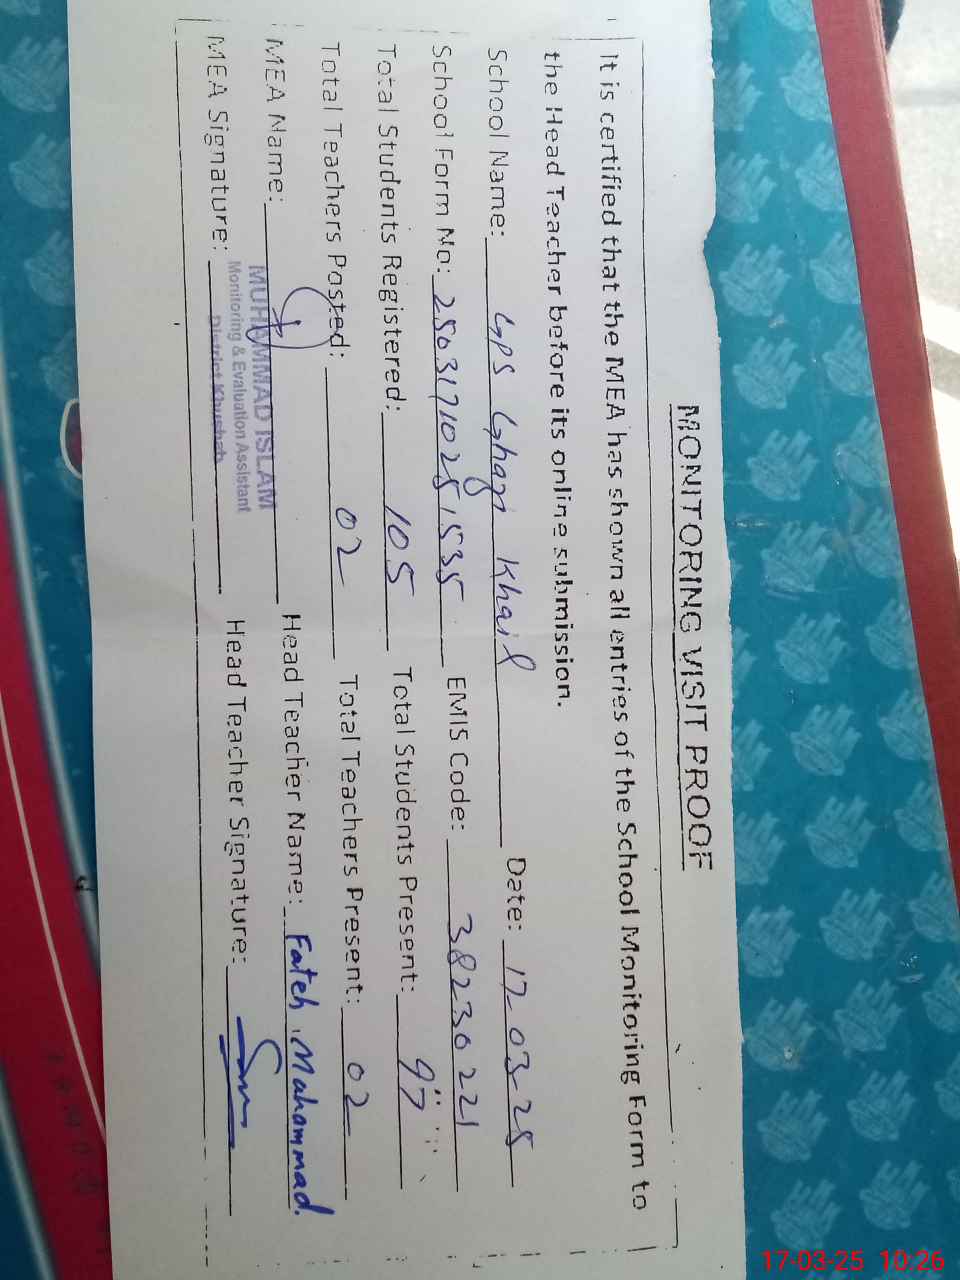 MONITORING VISIT PROOF
It is certified that the MEA has shown all entries of the School Monitoring Form to
the Head Teacher before its online submission.
School Name: GPS Ghagi Khail Date: 17-03-25
School Form No: 25031710251535 EMIS Code: 38230221
Total Students Registered: 105 Total Students Present: 97
Total Teachers Posted: 02 Total Teachers Present: 02
MEA Name: MUHAMMAD ISLAM Head Teacher Name: Fateh Mahammad.
Monitoring & Evaluation Assistant
MEA Signature: District Khushab Head Teacher Signature:
17-03-25 10:26